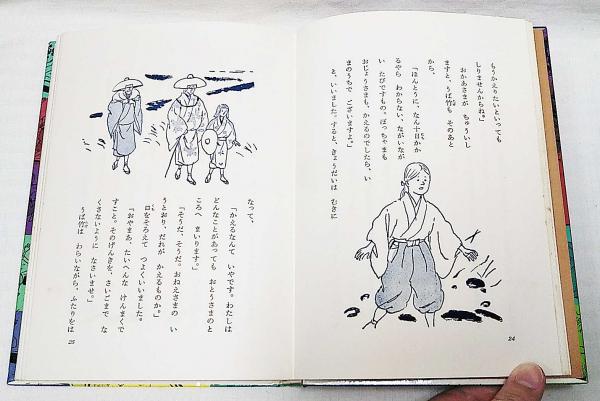 もうかえりたいといっても
しりませんからね。」
おかあさまが ちゅういし
ますと、うば竹も そのあと
から、
「ほんとうに、なん十日かか
るやら わからない、ながいなが
い たびですもの。ぼっちゃまも
おじょうさまも、かえるのでしたら、い
まのうちで ございますよ。」
と、いいました。すると、きょうだいは むきに
24
なって、
「かえるなんて いやです。わたしは
どんなことがあっても おとうさまのと
ころへ まいります。」
「そうだ、そうだ。おねえさまの い
うとおり、だれが かえるものか。」
口をそろえて つよくいいました。
「おやまあ、たいへんな けんまくで
すこと。そのげんきを、さいごまで な
くさないように なさいませ。」
うば竹は わらいながら、ふたりをは
25